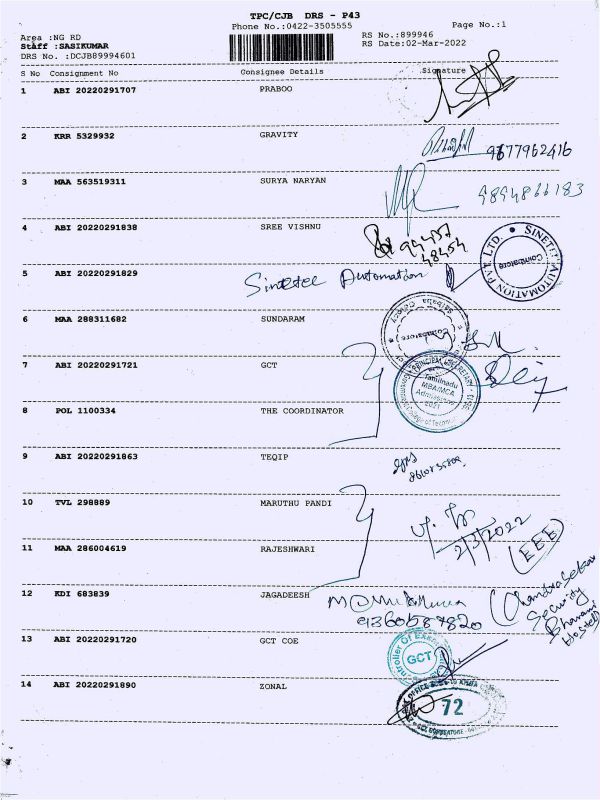 TPC/CJB DRS - P43
Phone No.:0422-3505555
Page No.:1
Area :NG RD
RS No.:899946
Staff :SASIKUMAR
RS Date:02-Mar-2022
DRS No. :DCJB89994601
S No Consignment No Consignee Details Signature
1 ABI 20220291707 PRABOO
2 KRR 5329932 GRAVITY
9677962416
3 MAA 563519311 SURYA NARYAN
9894866183
4 ABI 20220291838 SREE VISHNU
99457
48454
SINETEE AUTOMATION PVT. LTD.
Coimbatore
5 ABI 20220291829 Sinetee Automation
6 MAA 288311682 SUNDARAM
Coimbatore
7 ABI 20220291721 GCT
Tamilnadu
MBA/MCA
Admissions
2021
8 POL 1100334 THE COORDINATOR
9 ABI 20220291863 TEQIP
10 TVL 298889 MARUTHU PANDI
2/3/2022
11 MAA 286004619 RAJESHWARI
EEE
12 KDI 683839 JAGADEESH
9360587820
Chandra Sekar
Security
Bharani
Hostel
13 ABI 20220291720 GCT COE
GCT
14 ABI 20220291890 ZONAL
72